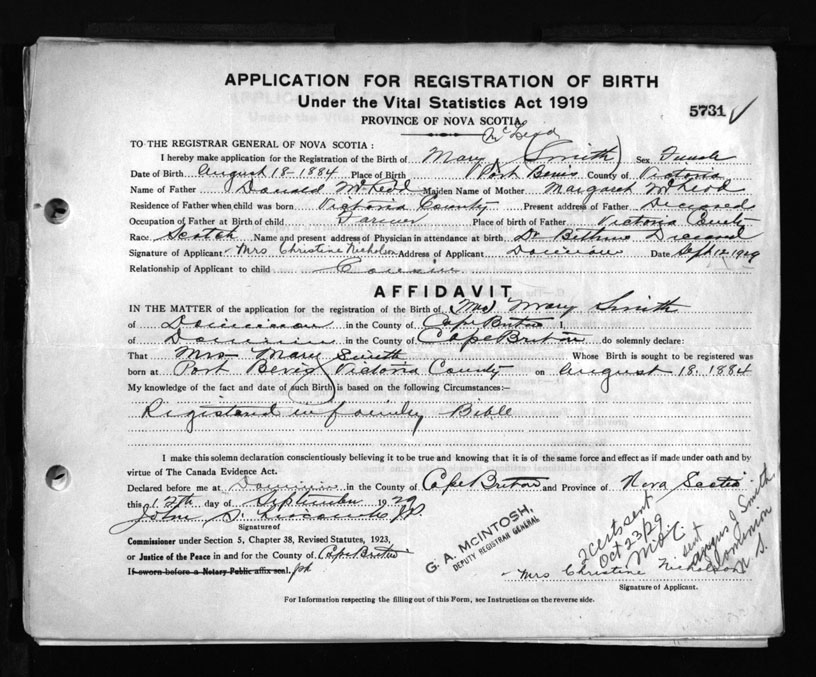 APPLICATION FOR REGISTRATION OF BIRTH
Under the Vital Statistics Act 1919
5731 ✓
PROVINCE OF NOVA SCOTIA
TO THE REGISTRAR GENERAL OF NOVA SCOTIA :
I hereby make application for the Registration of the Birth of Mary (Smith) Sex Female
Date of Birth August 18-1884 Place of Birth Port Bevis County of Victoria
Name of Father Donald McLeod Maiden Name of Mother Margaret McLeod
Residence of Father when child was born Victoria County Present address of Father Deceased
Occupation of Father at Birth of child Farmer Place of birth of Father Victoria County
Race Scotch Name and present address of Physician in attendance at birth Dr Bethune Deceased
Signature of Applicant Mrs Christine Nicholson Address of Applicant Dominion Date Sept 12 1929
Relationship of Applicant to child Cousin
AFFIDAVIT
IN THE MATTER of the application for the registration of the Birth of (Mrs) Mary Smith
of Dominion in the County of Cape Breton
of Dominion in the County of Cape Breton do solemnly declare:
That Mrs Mary Smith Whose Birth is sought to be registered was
born at Port Bevis Victoria County on August 18. 1884
My knowledge of the fact and date of such Birth is based on the following Circumstances:-
Registered in family Bible
I make this solemn declaration conscientiously believing it to be true and knowing that it is of the same force and effect as if made under oath and by
virtue of The Canada Evidence Act.
Declared before me at Dominion in the County of Cape Breton and Province of Nova Scotia
this 12th day of September 1929
John D. JP
Signature of
Commissioner under Section 5, Chapter 38, Revised Statutes, 1923,
or Justice of the Peace in and for the County of Cape Breton
If sworn before a Notary Public affix seal.
G. A. McINTOSH,
DEPUTY REGISTRAR GENERAL
2 certs sent
Oct 23/29
sent
Angus J Smith
Dominion
N S.
Mrs Christine Nicholson
Signature of Applicant.
For Information respecting the filling out of this Form, see Instructions on the reverse side.